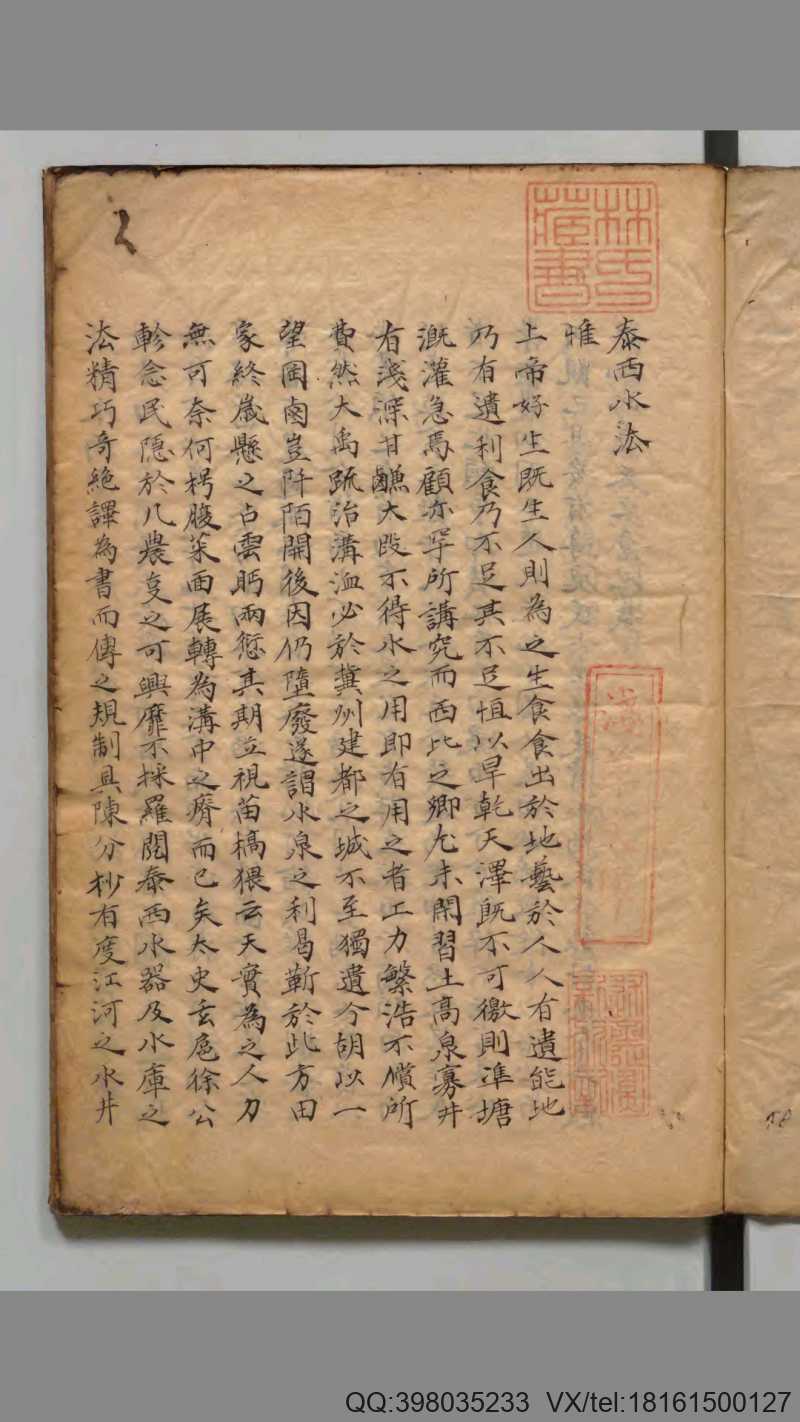 泰西水法
惟
上帝好生既生人則為之生食食出於地藝於人人有遺能地
乃有遺利食乃不足其不足恒以旱乾天澤既不可徼則準塘
溉灌急焉顧亦罕所講究而西北之鄉尤未閑習土高泉寡井
有淺深甘鹻大段不得水之用即有用之者工力繁浩不償所
費然大禹疏治溝洫必於冀州建都之域不至獨遺今胡以一
望囷鹵豈阡陌開後因仍墮廢遂謂水泉之利曷蘄於此方田
家終歲懸之占雲眄雨愆其期立視苗槁猥云天實為之人力
無可奈何枵腹菜面展轉為溝中之瘠而已矣太史玄扈徐公
軫念民隱於凡農叓之可興靡不採羅閱泰西水器及水庫之
法精巧奇絶譯為書而傳之規制具陳分杪有度江河之水井
林氏藏書
QQ:398035233 VX/tel:18161500127